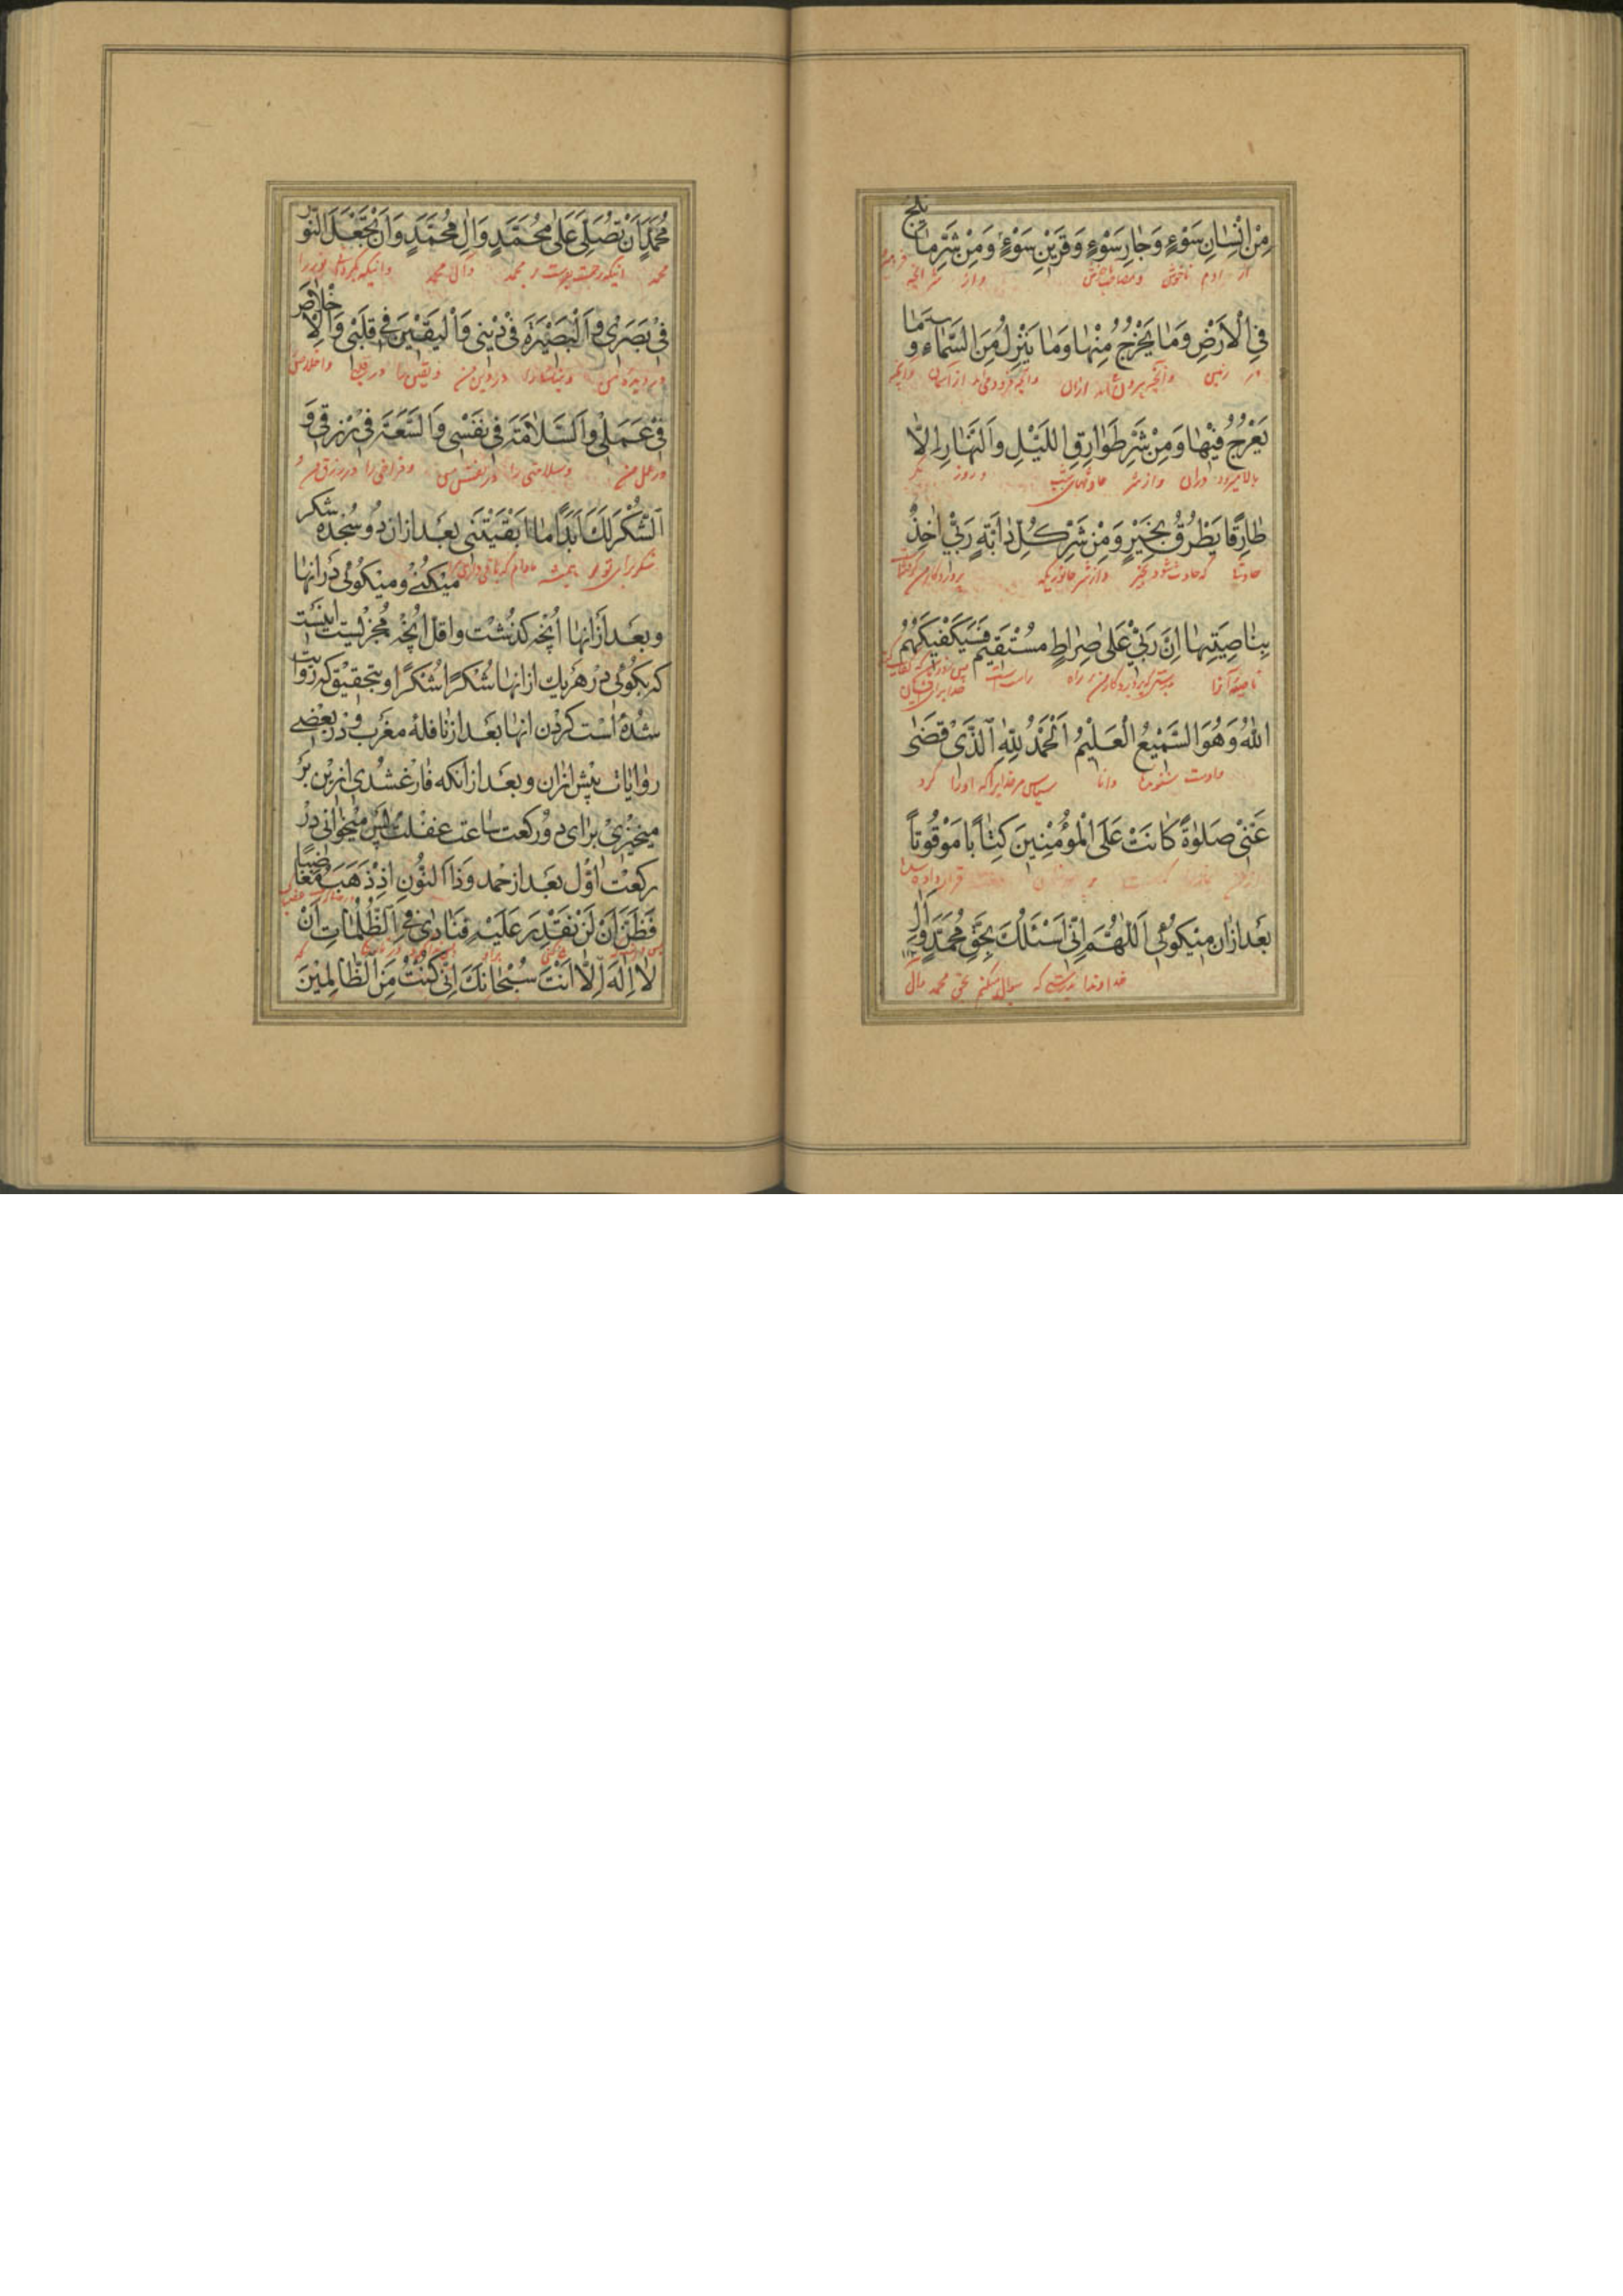 مِنْ اِنْسٰانِ سَوْءٍ وَجٰارِ سَوْءٍ وَقَرٖينِ سَوْءٍ وَمِنْ شَرِّ مٰا يَلِجُ
از ادم ناخوش واز شر انچه
فِي الْاَرْضِ وَمٰا يَخْرُجُ مِنْهٰا وَمٰا يَنْزِلُ مِنَ السَّمٰاءِ وَمٰا
در زمین وآنچه بیرون از آن وآنچه فرود می‌اید از آسمان وآنچه
يَعْرُجُ فيٖهٰا وَمِنْ شَرِّ طَوٰارِقِ اللَّيْلِ وَالنَّهٰارِ اِلّٰا
بالا میرود دران واز شر شب وروز مگر
طٰارِقًا يَطْرُقُ بِخَيْرٍ وَمِنْ شَرِّ كُلِّ دٰابَّةٍ رَبّٖي اٰخِذٌ
که حادث شود بخیر واز شر جانوریکه پروردکار من
بِنٰاصِيَتِهٰا اِنَّ رَبّٖي عَلىٰ صِرٰاطٍ مُسْتَقيٖمٍ فَسَيَكْفيٖكَهُمُ
پروردکار من بر راه راست
اللّٰهُ وَهُوَ السَّميٖعُ الْعَليٖمُ اَلْحَمْدُ لِلّٰهِ الَّذٖي قَضىٰ
واوست شنوا ودانا سپاس مر خدایرا که
عَنّٖي صَلٰوةً كٰانَتْ عَلَى الْمُؤْمِنيٖنَ كِتٰابًا مَوْقُوتًا
بعَد ازان ميٖكوئى اَللّٰهُمَّ اِنّٖي اَسْئَلُكَ بِحَقِّ مُحَمَّدٍ وَاٰلِ
خداوندا بدرستیکه سؤال میکنم بحق محمد وآل
مُحَمَّدٍ اَنْ تُصَلِّيَ عَلىٰ مُحَمَّدٍ وَاٰلِ مُحَمَّدٍ وَاَنْ تَجْعَلَ النُّورَ
محمد اینکه رحمت بفرستی بر محمد وآل محمد واینکه نور را
فٖي بَصَرٖي وَالْبَصيٖرَةَ فٖي ديٖنٖي وَالْيَقيٖنَ فٖي قَلْبٖي وَالْاِخْلٰاصَ
در دیده من در دین من ویقین را واخلاص
فٖي عَمَلٖي وَالسَّلٰامَةَ فٖي نَفْسٖي وَالسَّعَةَ فٖي رِزْقٖي وَ
در عمل من وسلامتی را در نفس من وفراخی را در رزق من و
الشُّكْرَ لَكَ اَبَدًا مٰا اَبْقَيْتَنٖي بعَد ازان دو سُجده شكر
شکر برای تو همیشه مادام که باقی داری
ميٖكنىٖ وميٖكوئى دَر انهٰا
وبعَد اَز انهٰا اُنچٖه كذشت واقل اُنچٖه مُجزيٖست اينست
كه بكوئى دَر هر يك از انهٰا شُكرًا شُكرًا وبتحقيٖق كه روايت
شُدهٔ اَست كردن انهٰا بعَد از نافلهٔ مغرب ودر بعضىٖ
روٰايٰات پيٖش ازان وبعَد از انكه فٰارغ شدى ازيٖن بَر
ميٖخيزى برٰاى دو ركعت سٰاعت غفلت پس ميٖخوانى در
ركعت اوّل بعَد از حمد وَذَا النُّونِ اِذْ ذَهَبَ مُغٰاضِبًا
فَظَنَّ اَنْ لَنْ نَقْدِرَ عَلَيْهِ فَنٰادىٰ فِي الظُّلُمٰاتِ اَنْ
لٰا اِلٰهَ اِلّٰا اَنْتَ سُبْحٰانَكَ اِنّٖي كُنْتُ مِنَ الظّٰالِميٖنَ